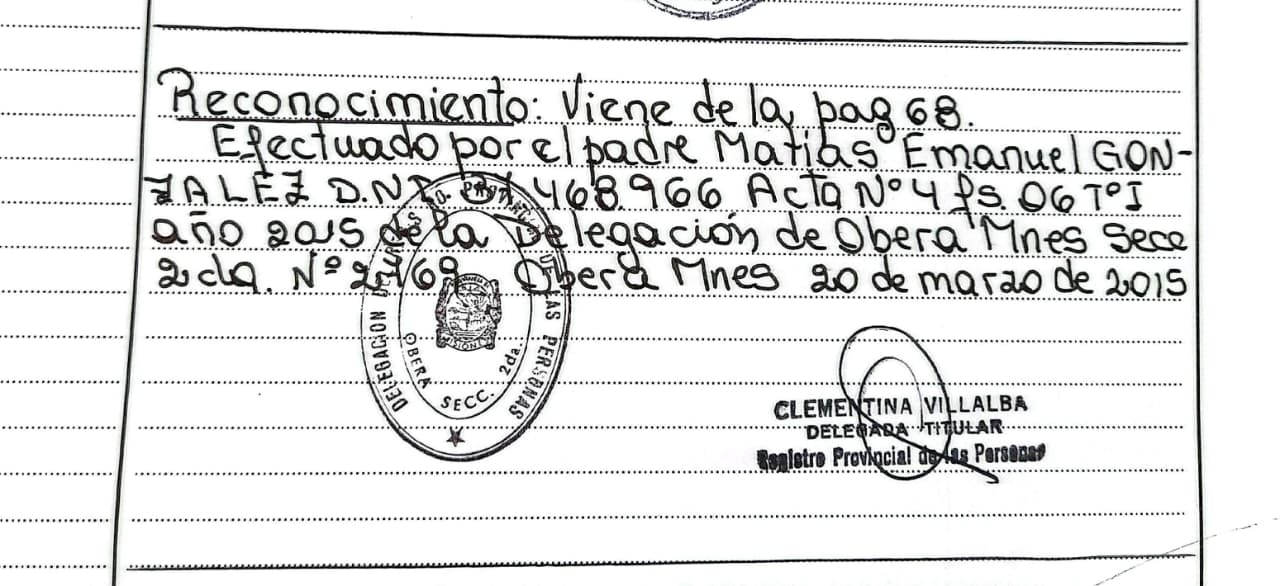 Reconocimiento: Viene de la pag 68.
Efectuado por el padre Matias Emanuel GON-
ZALEZ D.N.I. 468.966 Acta Nº 4 fs. 06 TºI
año 2015 de la Delegación de Obera Mnes Secc
2da. Nº Obera Mnes 20 de marzo de 2015
DELEGACION DE LAS PERSONAS
OBERA SECC. 2da.
CLEMENTINA VILLALBA
DELEGADA TITULAR
Registro Provincial de las Personas